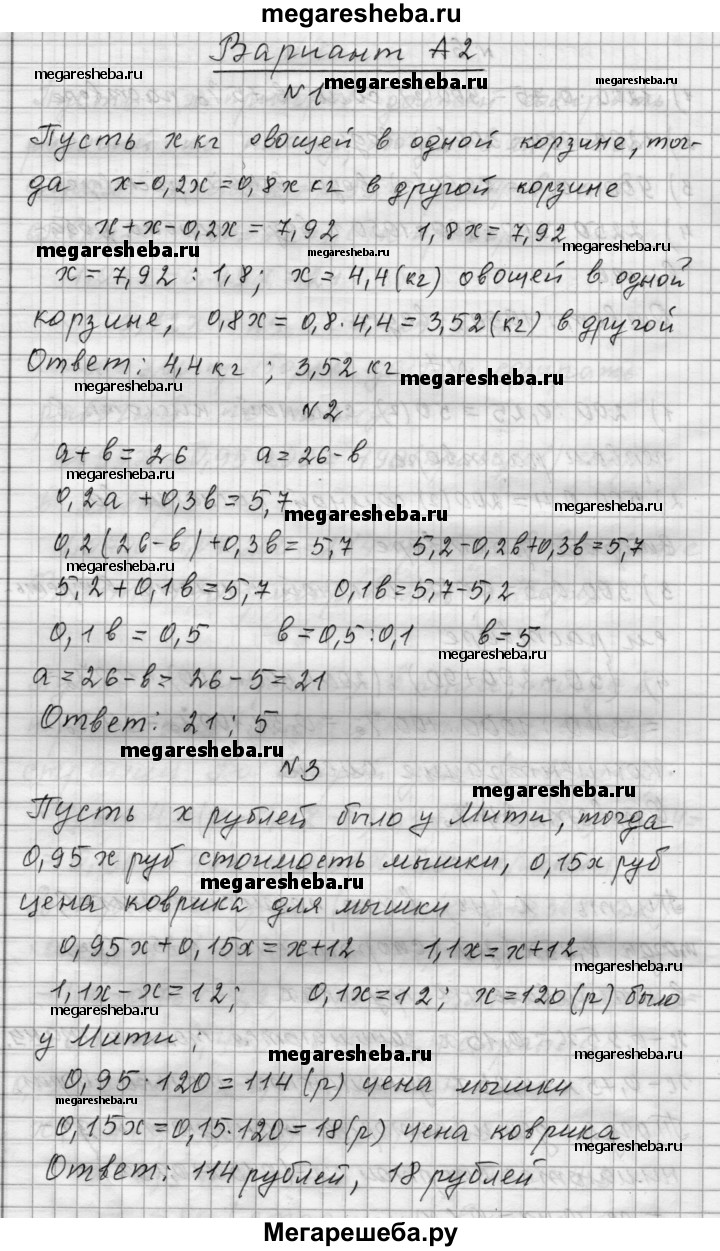 megaresheba.ru
Вариант А2
megaresheba.ru
№1 megaresheba.ru
megaresheba.ru
Пусть х кг овощей в одной корзине, тог-
да х-0,2х=0,8х кг в другой корзине
х+х-0,2х=7,92 1,8х=7,92
megaresheba.ru megaresheba.ru megaresheba.ru
х=7,92 : 1,8; х=4,4(кг) овощей в одной
корзине, 0,8х=0,8·4,4=3,52(кг) в другой
Ответ: 4,4кг ; 3,52кг
megaresheba.ru megaresheba.ru
№2
а+в=26 а=26-в
megaresheba.ru
0,2а+0,3в=5,7
megaresheba.ru megaresheba.ru
0,2(26-в)+0,3в=5,7 5,2-0,2в+0,3в=5,7
megaresheba.ru
5,2+0,1в=5,7 0,1в=5,7-5,2
0,1в=0,5 в=0,5:0,1 в=5
megaresheba.ru
а=26-в=26-5=21
Ответ: 21; 5
megaresheba.ru
№3
megaresheba.ru
Пусть х рублей было у Мити, тогда
0,95х руб стоимость мышки, 0,15х руб
megaresheba.ru
цена коврика для мышки
0,95х+0,15х=х+12 1,1х=х+12
megaresheba.ru
1,1х-х=12; 0,1х=12; х=120(р) было
megaresheba.ru
у Мити;
megaresheba.ru megaresheba.ru
0,95·120=114(р) цена мышки
megaresheba.ru
0,15х=0,15·120=18(р) цена коврика
megaresheba.ru
Ответ: 114рублей, 18 рублей
Мегарешеба.ру